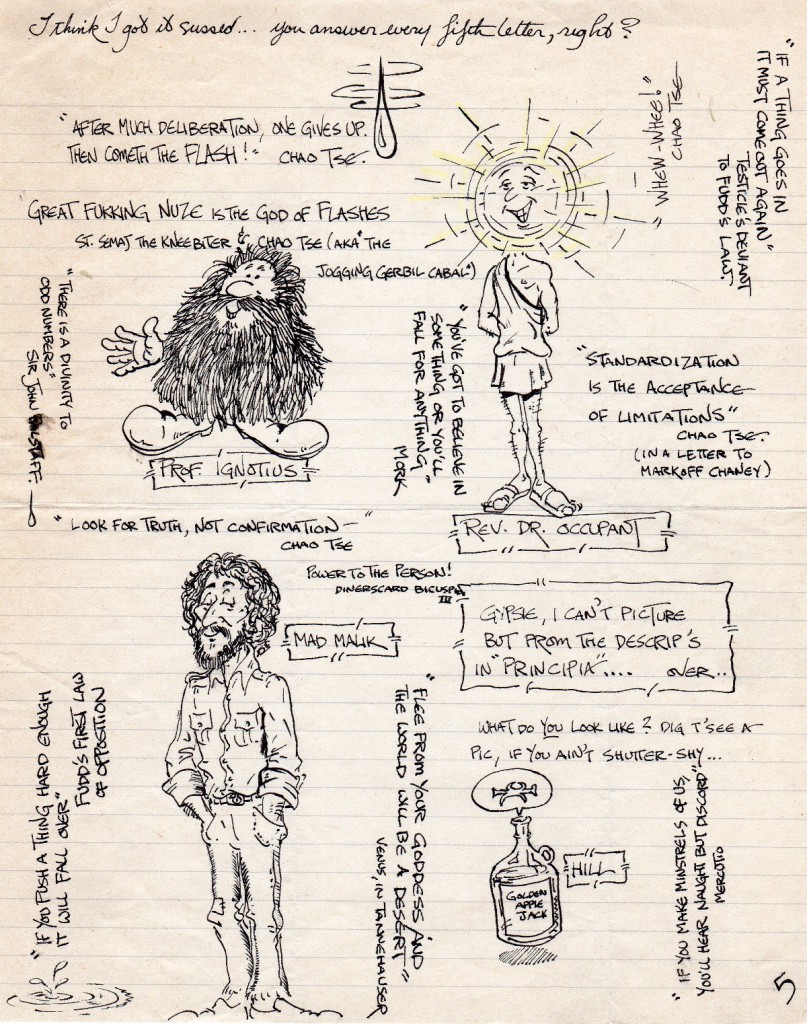 I think I got it sussed... you answer every fifth letter, right?
"AFTER MUCH DELIBERATION, ONE GIVES UP.
THEN COMETH THE FLASH!" CHAO TSE.
"WHEW-WHEE!"
CHAO TSE—
"IF A THING GOES IN
IT MUST COME OUT AGAIN"
TESTICLE'S DEVIANT
TO FUDD'S LAW.
GREAT FUKKING NUZE IS THE GOD OF FLASHES
ST. SEMAJ THE KNEEBITER & CHAO TSE (AKA "THE
JOGGING GERBIL CABAL")
"THERE IS A DIVINITY TO
ODD NUMBERS"
SIR JOHN FALSTAFF.
PROF. IGNOTIUS
"YOU'VE GOT TO BELIEVE IN
SOMETHING OR YOU'LL
FALL FOR ANYTHING"
MORK
"STANDARDIZATION
IS THE ACCEPTANCE
OF LIMITATIONS"
CHAO TSE.
(IN A LETTER TO
MARKOFF CHANEY)
REV. DR. OCCUPANT
"LOOK FOR TRUTH, NOT CONFIRMATION—"
CHAO TSE
POWER TO THE PERSON!
DINERSCARD BICUSPID
III
MAD MALIK
GYPSIE, I CAN'T PICTURE
BUT FROM THE DESCRIP'S
IN "PRINCIPIA".... OVER..
WHAT DO YOU LOOK LIKE? DIG T'SEE A
PIC, IF YOU AIN'T SHUTTER-SHY...
"IF YOU PUSH A THING HARD ENOUGH
IT WILL FALL OVER"
FUDD'S FIRST LAW
OF OPPOSITION
"FLEE FROM YOUR GODDESS AND
THE WORLD WILL BE A DESERT"
VENUS, IN TANNEHAUSER
GOLDEN
APPLE
JACK
HILL
"IF YOU MAKE MINSTRELS OF US,
YOU'LL HEAR NAUGHT BUT DISCORD"
MERCUTIO
5